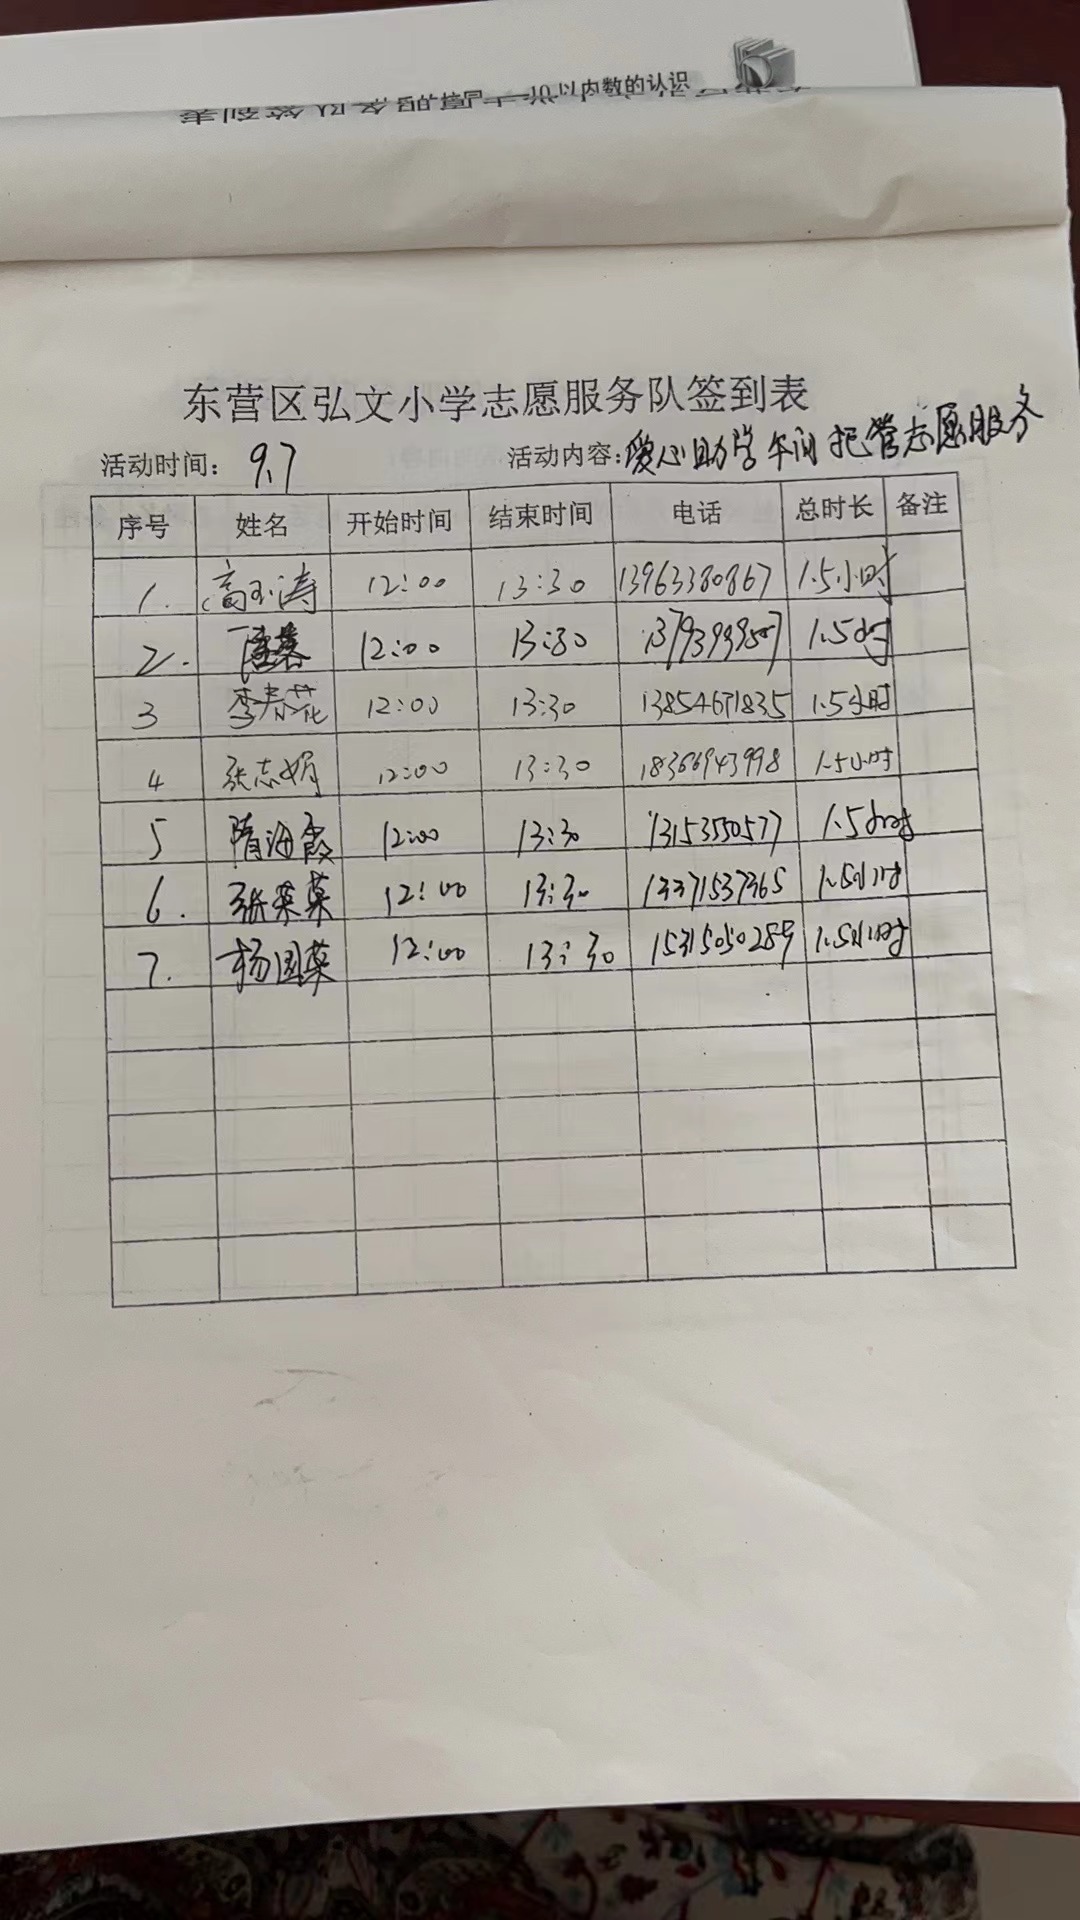 10以内数的认识
东营区弘文小学志愿服务队签到表
活动时间： 9.7 活动内容：爱心助学午间托管志愿服务
序号 姓名 开始时间 结束时间 电话 总时长 备注
1. 高玉涛 12:00 13:30 13963380867 1.5小时
2. 12:00 13:30 1.5小时
3 李春花 12:00 13:30 13854671835 1.5小时
4 张志娟 12:00 13:30 18366943998 1.5小时
5 隋海霞 12:00 13:30 1.5小时
6. 张英菊 12:00 13:30 13371537365 1.5小时
7. 杨国菊 12:00 13:30 15315050289 1.5小时